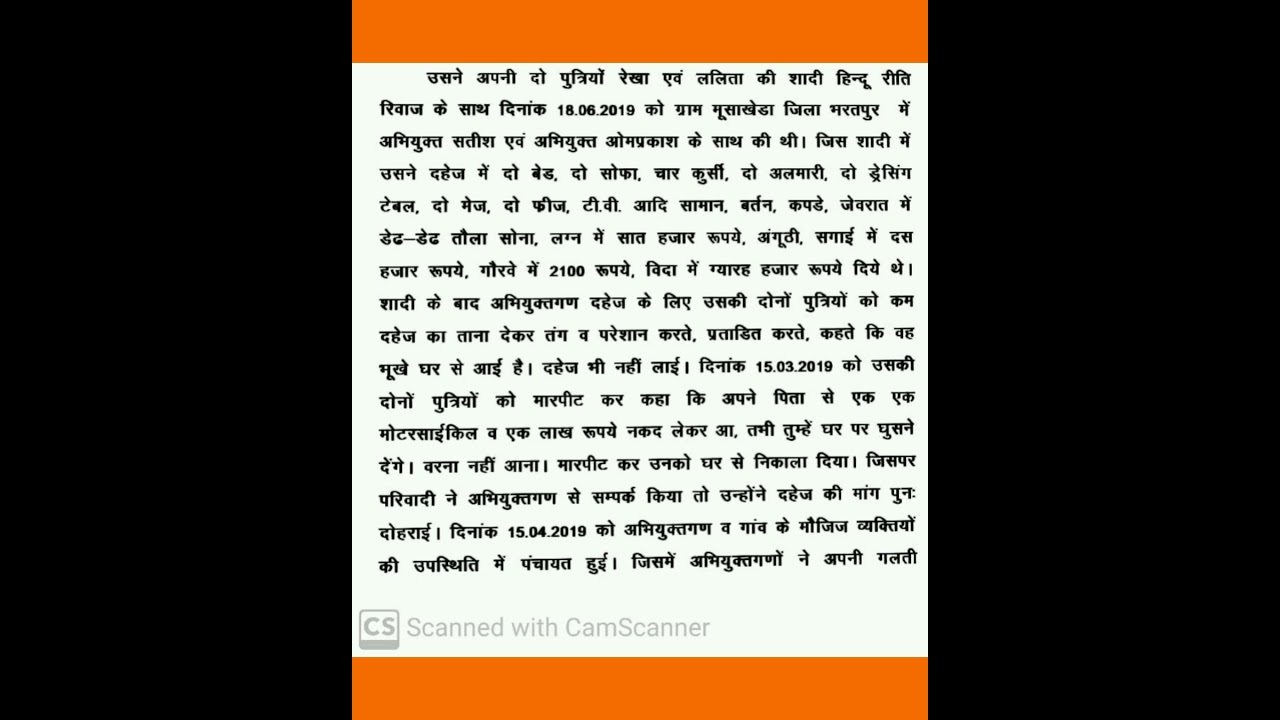 उसने अपनी दो पुत्रियों रेखा एवं ललिता की शादी हिन्दू रीति
रिवाज के साथ दिनांक 18.06.2019 को ग्राम मूसाखेडा जिला भरतपुर में
अभियुक्त सतीश एवं अभियुक्त ओमप्रकाश के साथ की थी। जिस शादी में
उसने दहेज में दो बेड, दो सोफा, चार कुर्सी, दो अलमारी, दो ड्रेसिंग
टेबल, दो मेज, दो फ्रीज, टी.वी. आदि सामान, बर्तन, कपडे, जेवरात में
डेढ–डेढ तौला सोना, लग्न में सात हजार रूपये, अंगूठी, सगाई में दस
हजार रूपये, गौरवे में 2100 रूपये, विदा में ग्यारह हजार रूपये दिये थे।
शादी के बाद अभियुक्तगण दहेज के लिए उसकी दोनों पुत्रियों को कम
दहेज का ताना देकर तंग व परेशान करते, प्रताडित करते, कहते कि वह
भूखे घर से आई है। दहेज भी नहीं लाई। दिनांक 15.03.2019 को उसकी
दोनों पुत्रियों को मारपीट कर कहा कि अपने पिता से एक एक
मोटरसाईकिल व एक लाख रूपये नकद लेकर आ, तभी तुम्हें घर पर घुसने
देंगे। वरना नहीं आना। मारपीट कर उनको घर से निकाला दिया। जिसपर
परिवादी ने अभियुक्तगण से सम्पर्क किया तो उन्होंने दहेज की मांग पुनः
दोहराई। दिनांक 15.04.2019 को अभियुक्तगण व गांव के मौजिज व्यक्तियों
की उपस्थिति में पंचायत हुई। जिसमें अभियुक्तगणों ने अपनी गलती
CS Scanned with CamScanner